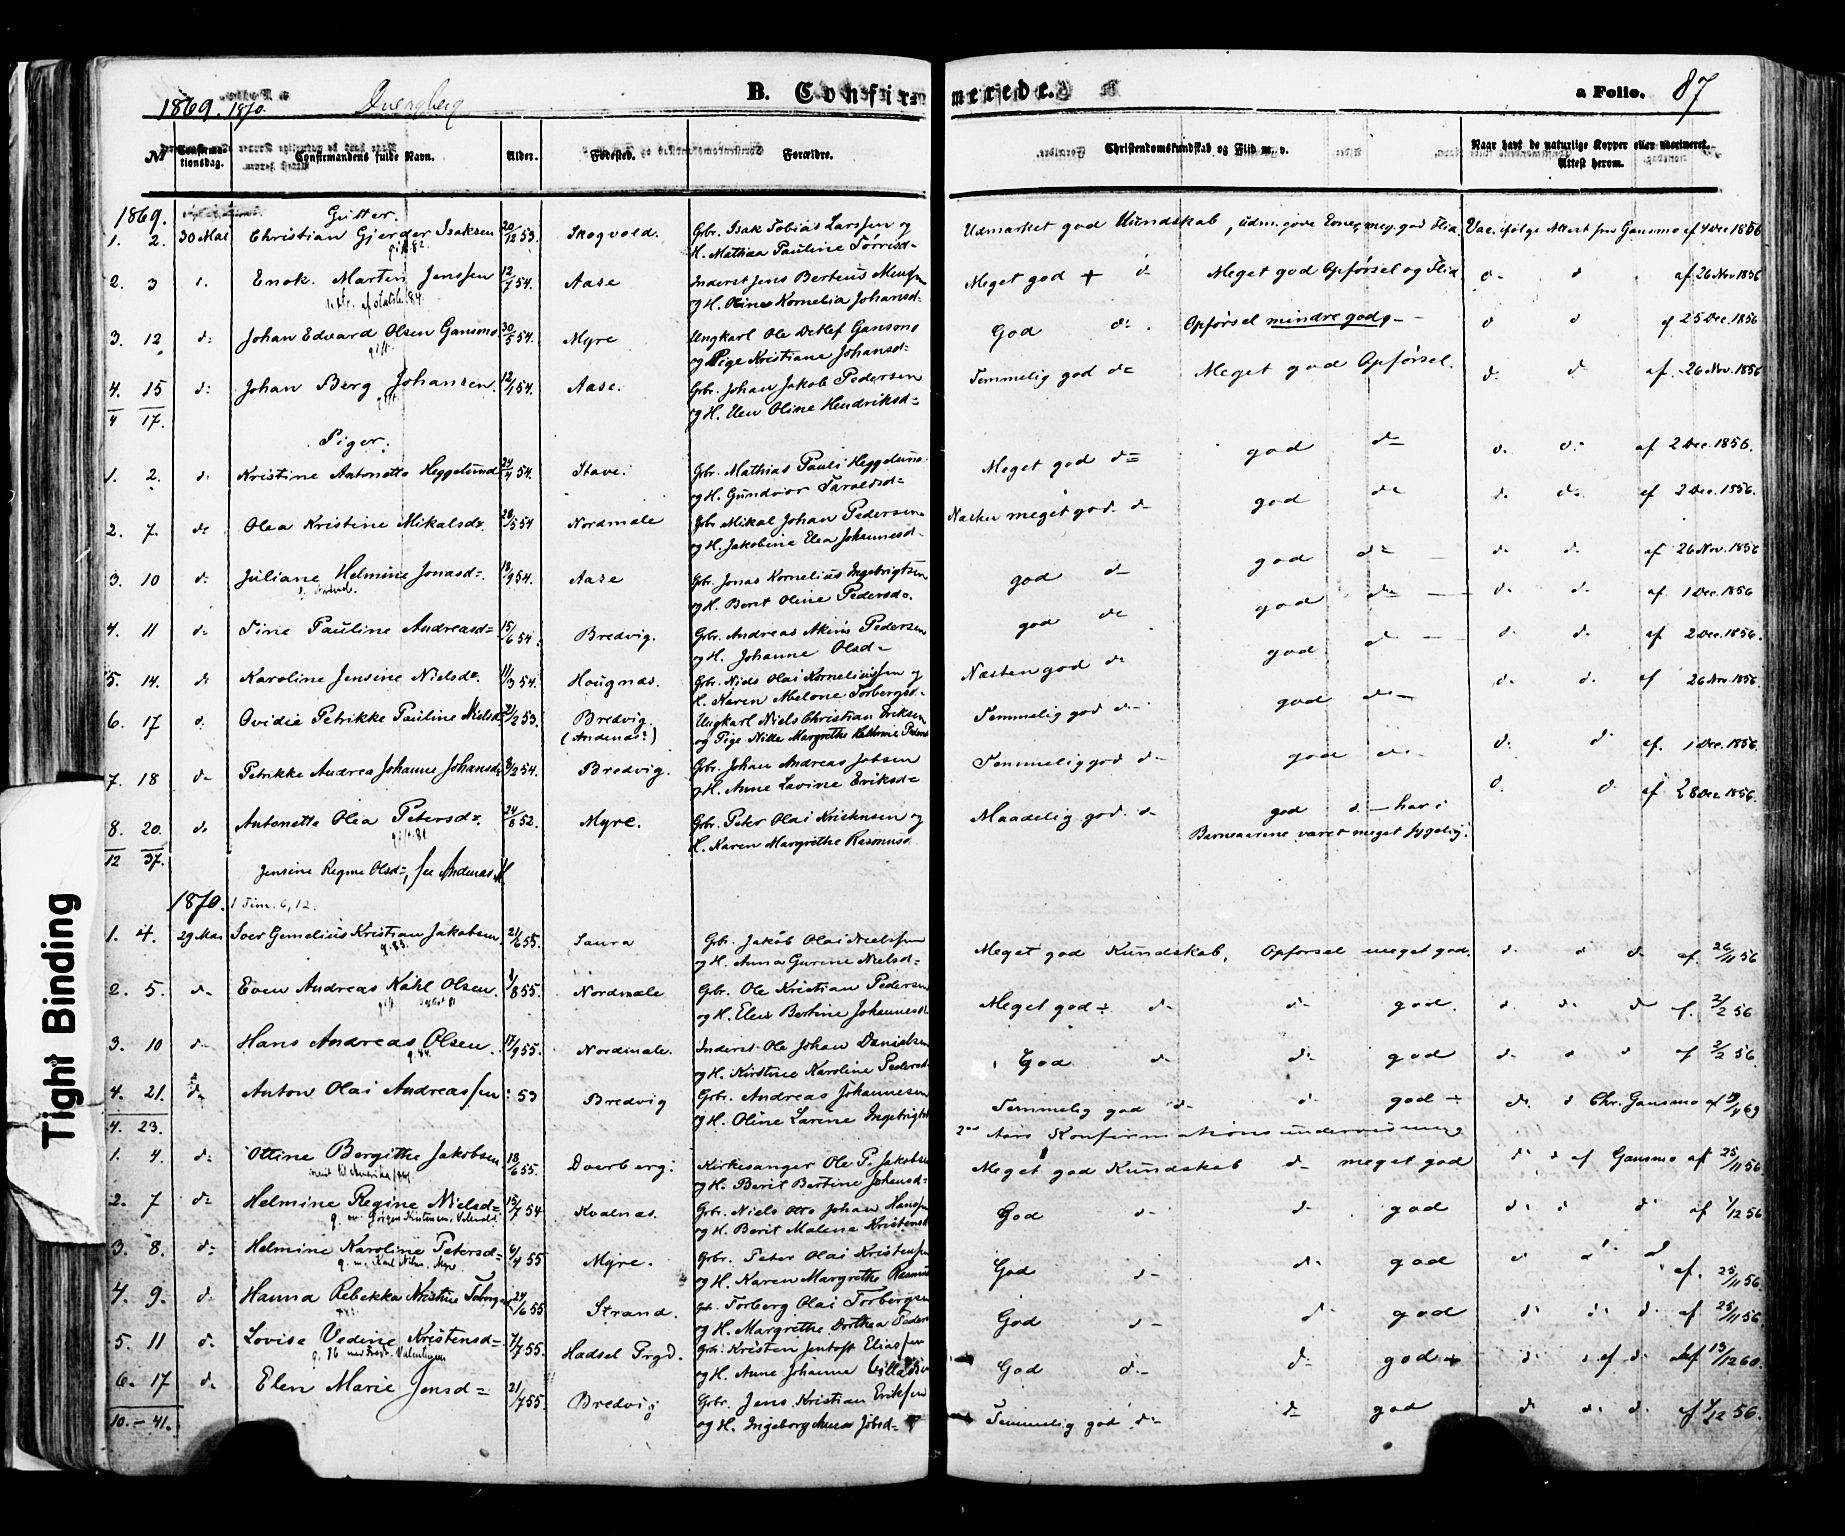 1869. 1870. Dverberg B. Confirmerede. a Folio. 87
No Confirmationsdag. Confirmandens fulde Navn. Alder. Fødested. Forældre. Christendomskundskab og Flid m. v. Naar havt de naturlige Kopper eller vaccineret. Attest herom.
1869. Gutter.
1. 2. 30 Mai Christian Gjerder Isaksen 20/12 53. Skogvold. Gbr. Isak Tobias Larssen og Udmærket god Kundskab, udm. gode Evner, meg. god Flid. Vac. ifølge Attest fra Gansmo af 4 Dec 1856
gift 82. H. Mathea Pauline Torrisd-
2. 3 Enok Martin Jenssen 12/7 54. Aase Inderst Jens Berteus Mensen Meget god + d- Meget god Opførsel og Flid d- d af 26 Nov 1856
og H. Oline Kornelia Johansd-
3. 12 d- Johan Edvard Olsen Gansmo 30/5 54. Myre Ungkarl Ole Detlef Gansmo God d- Opførsel mindre god, - d d af 25 Dec. 1856
gift. og Pige Kristiane Johansd-
4. 15 d- Johan Berg Johansen. 12/1 54. Aase. Gbr. Johan Jakob Pedersen Temmelig god d- Meget god Opførsel. d. d. af. 26 Nov. 1856
gift og H. Elen Oline Hendriksd-
4 17.
Piger.
1. 2. d. Kristine Antonette Heggelund 24/4 54. Stave. Gbr. Mathias Pauli Heggelund Meget god d- god d- d. d- af 2 Dec. 1856.
og H. Gundvor Taraldsd-
2. 7. d- Olea Kristine Mikalsd- 28/5 54 Nordmæle Gbr Mikal Johan Pedersen Næsten meget god. d- god d- d. d. af 2 Dec. 1856.
og H. Jakobine Elea Johannesd-
3. 10 d- Juliane Helmine Jonasd-. 18/9 54. Aase Gbr. Jonas Kornelius Ingebrigtsen god d- god d- d. d. af 26 Nov. 1856
og H. Berit Oline Pedersd-.
4. 11 d- Tine Pauline Andreasd- 15/6 54. Bredvig. Gbr. Andreas Akins Pedersen god d- god d- d. d. af 1 Dec. 1856
og H. Johanne Olsd-
5. 14. d- Karoline Jensine Nielsd-. 11/3 54. Hougnæs. Gbr. Niels Olai Korneliussen og Næsten god d- god d- d. d. af 2 Dec. 1856.
H. Karen Malone Torbergsd-
6. 17 d. Ovidie Petrikke Pauline Nielsd- 21/2 53. Bredvig. Ungkarl Niels Christian Eriksen Temmelig god d- god d- d. d. af 26 Nov. 1856.
(Andenæs) og Pige Nille Margrethe Kathrine Peders
7. 18 d- Petrikke Andrea Johanne Johansd- 8/2 54. Bredvig. Gbr. Johan Andreas Jobsen Temmelig god d- god d- d. d. af. 1 Dec. 1856.
og H. Anne Lavine Eriksd-
8. 20. d- Antonette Olea Petersd-. 24/8 52. Myre. Gbr. Peter Olai Kristensen og Maadelig god. d- god d- har i d. d. af 28 Dec 1856.
gift. 81. H. Karen Margrethe Rasmusd Barneaarene været meget sygelig.
12 37. Jensine Regine Olsd-, see Andenæs
1870. 1 Tim. 6,12.
1. 4. 29 Mai Iver Gemelius Kristian Jakobsen 21/6 55. Saura Gbr. Jakob Olai Nielssen Meget god Kundskab. Opførsel meget god. d. d d- af. 26/11 56
g. 83. og H. Anna Gurine Nielsd-
2. 5. d- Even Andreas Kahl Olsen. 1/8 55. Nordmæle Gbr. Ole Kristian Pedersen Meget god ÷ d- d- god. d. d. d af. 2/2 56
gift og H. Elen Bertine Johannesd
3. 10 d- Hans Andreas Olsen 17/9 55. Nordmæle. Inderst Ole Johan Danielsen God d- d- god d. d d af 2/2 56
og H. Kirstine Karoline Pedersd
4. 21. d- Anton Olai Andreassen 53 Bredvig Gbr. Andreas Johannesen Temmelig god d- d- god ÷ d- d Chr. Gansmo af 69
4. 23. og H. Oline Lavine Ingebrigts 2det Aars Konfirmationsundervisning
1. 4. d- Ottine Bergithe Jakobsen 18/6 55. Dverberg. Kirkesanger Ole P. Jakobsen Meget god Kundskab d- meget god d- d af Gansmo af 25/11 56
og H. Berit Bertine Johansd-
2. 7 d- Helmine Regine Nielsd- 15/7 54 Kvalnæs. Gbr. Niels Otto Johan Hansen God d- d- god d. d. d. af 1/12 56
og H. Berit Malena Kristensd
3. 8. d- Helmine Karoline Petersd- 6/4 55 Myre. Gbr. Peter Olai Kristensen God d- d- god d d d af. 25/11 56.
og H. Karen Margrethe Rasmus
4. 9. d- Hanna Rebekka Kristine Torbergsd- 24/6 55 Strand. Gbr. Torberg Olai Torbergsen God d- d- god d. d. d. af 25/11 56
og H. Margrethe Dorthea Peders
5. 11 d. Lovise Vedine Kristensd- 7/7 55. Hadsel Prgd. Gbr. Kristen Jentoft Eliassen God d- d- god + d. d af d. af 13/12 60.
og H. Anne Johanne Villads
6. 17 d- Elen Marie Jensd- 21/7 55. Bredvig Gbr. Jens Kristian Eriksen Temmelig god d- d- god d. d. d. af 1/12 56.
10. - 41. og H. Ingeborg Anna Jobsd-
Tight Binding